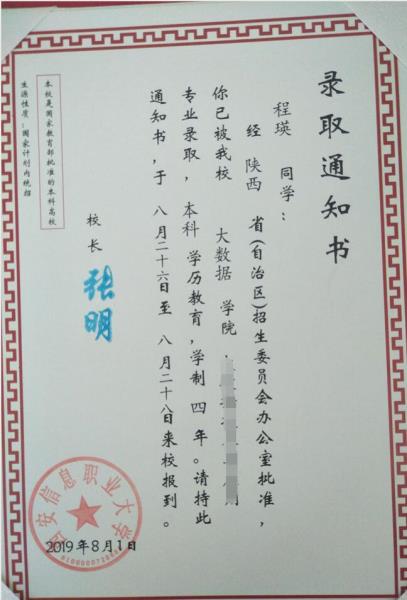 录取通知书
程瑛 同学:
经 陕西 省(自治区)招生委员会办公室批准,
你已被我校 大数据 学院,
专业录取, 本科 学历教育,学制 四 年。请持此
通知书,于 八月二十六日至 八月二十八日来校报到。
校长 张明
本校是国家教育部批准的本科高校
生源性质:国家计划内统招
西安信息职业大学
2019年8月1日